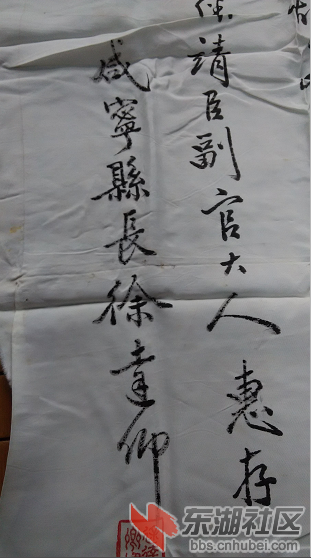 靖臣副官大人惠存
咸寧縣長徐達仰
东湖社区
bbs.cnhubei.com